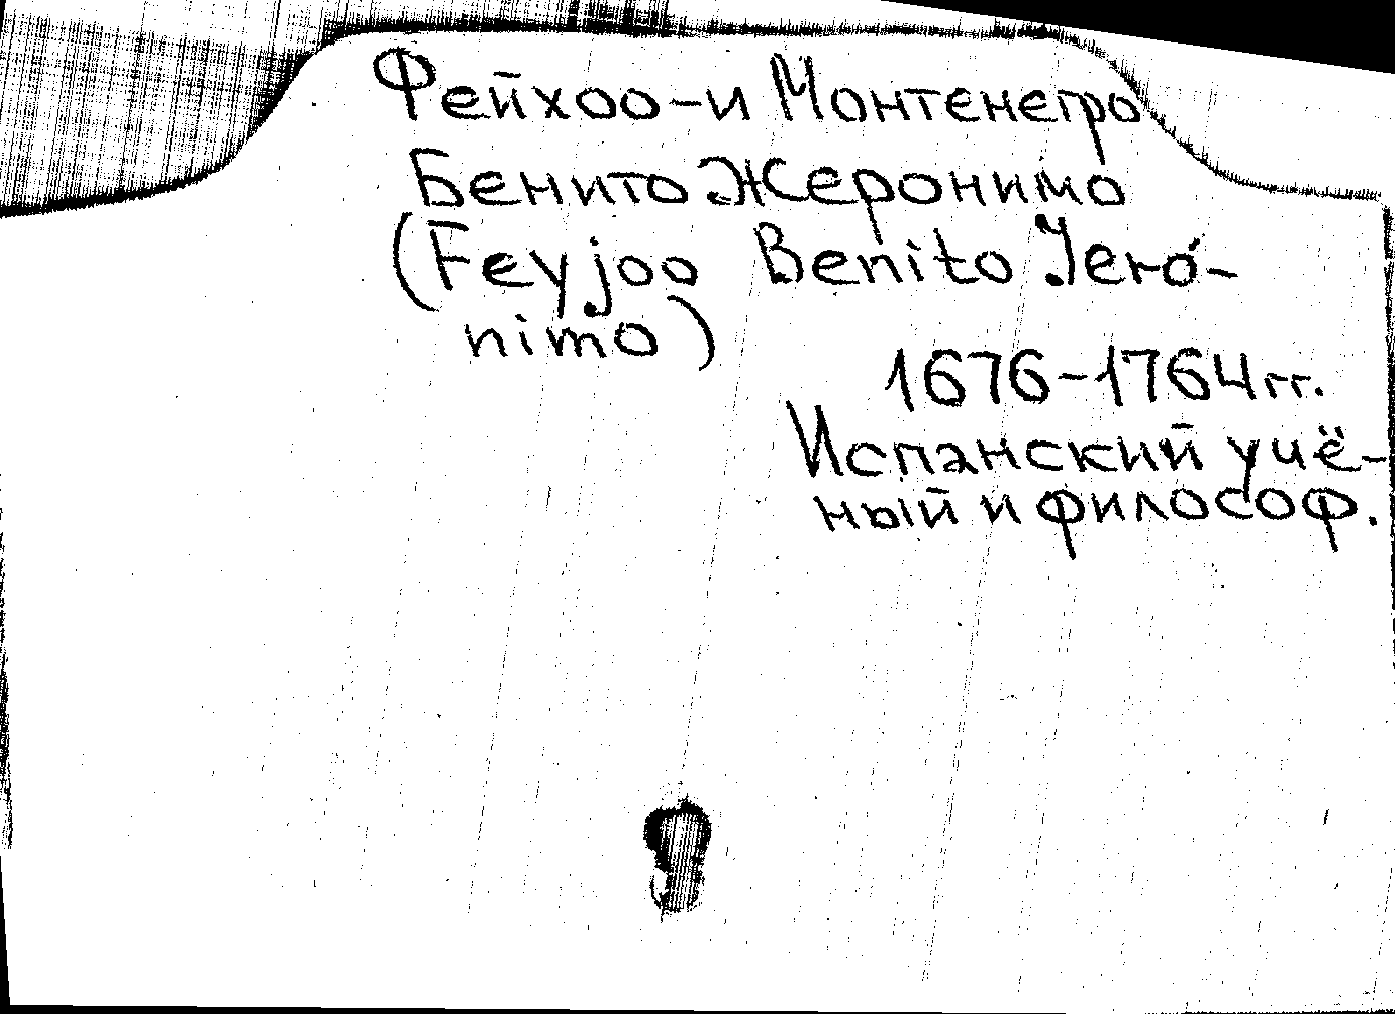 Фейхоо-и Монтенегро
Бенито Жеронимо
(Feyjoo Benito Jeró-
nimo)
1676-1764 гг.
Испанский учё-
ный и философ.